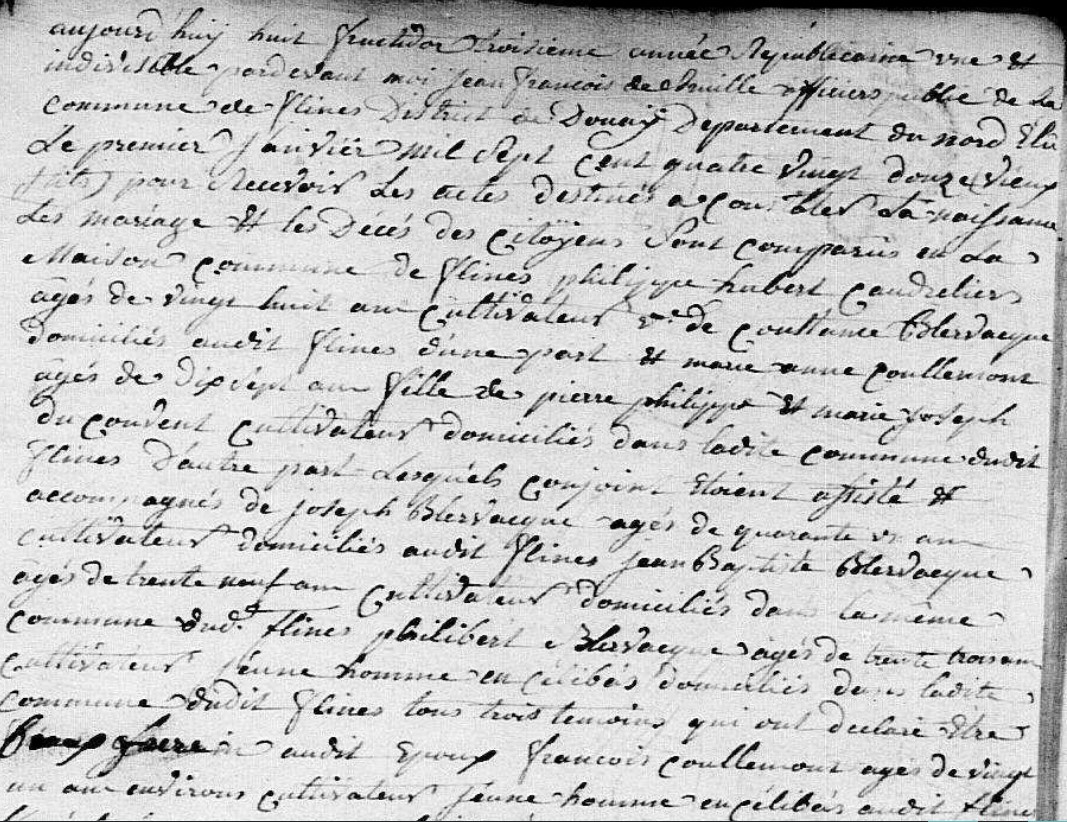 aujourd'huÿ huit fructidor troisieme année Républicaine une et
indivisible pardevant moi jean francois officier public de La
commune de flines District de Douaÿ Departement du nord Elu
Le premier Janvier mil Sept Cent quatre vingt douze (vieux
stil) pour Recevoir Les actes destinés a La naissance
Les mariage et les Décés des Citoÿens Sont comparus en La
Maison commune de flines philippe hubert Caudreliers
agés de vingt huit ans Cultivateur v.e de Constance Blervacque
domiciliés audit flines d'une part et marie anne Coullemont
agés de Dixsept ans fille de pierre philippe et marie joseph
du Couvent Cultivateur domiciliés dans ladite commune dudit
flines D'autre part Lesquels Conjoint Etoient assisté et
accompagnés de joseph Blervacque agés de quarante un ans
cultivateur domiciliés audit flines jean Baptiste Blervacque
agés de trente neuf ans Cultivateur domiciliés dans la même
commune dud.t flines philibert Blervacque agés de trente trois ans
Cultivateur jeune homme en célibas domiciliés dans ladite
commune dudit flines tous trois temoins qui ont declaré Etre
audit Epoux francois Coullemont agés de vingt
un ans environs cultivateur jeune homme en célibas audit flines